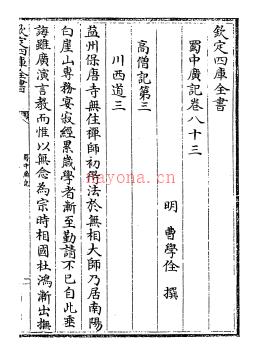 欽定四庫全書
蜀中廣記卷八十三
明 曹學佺 撰
高僧記第三
川西道三
益州保唐寺無住禪師初得法於無相大師乃居南陽
白崖山專務宴寂經累歲學者漸至勤請不已自此垂
誨雖廣演言教而惟以無念為宗時相國杜鴻漸出撫
欽定四庫全書
蜀中廣記
nayona.cn